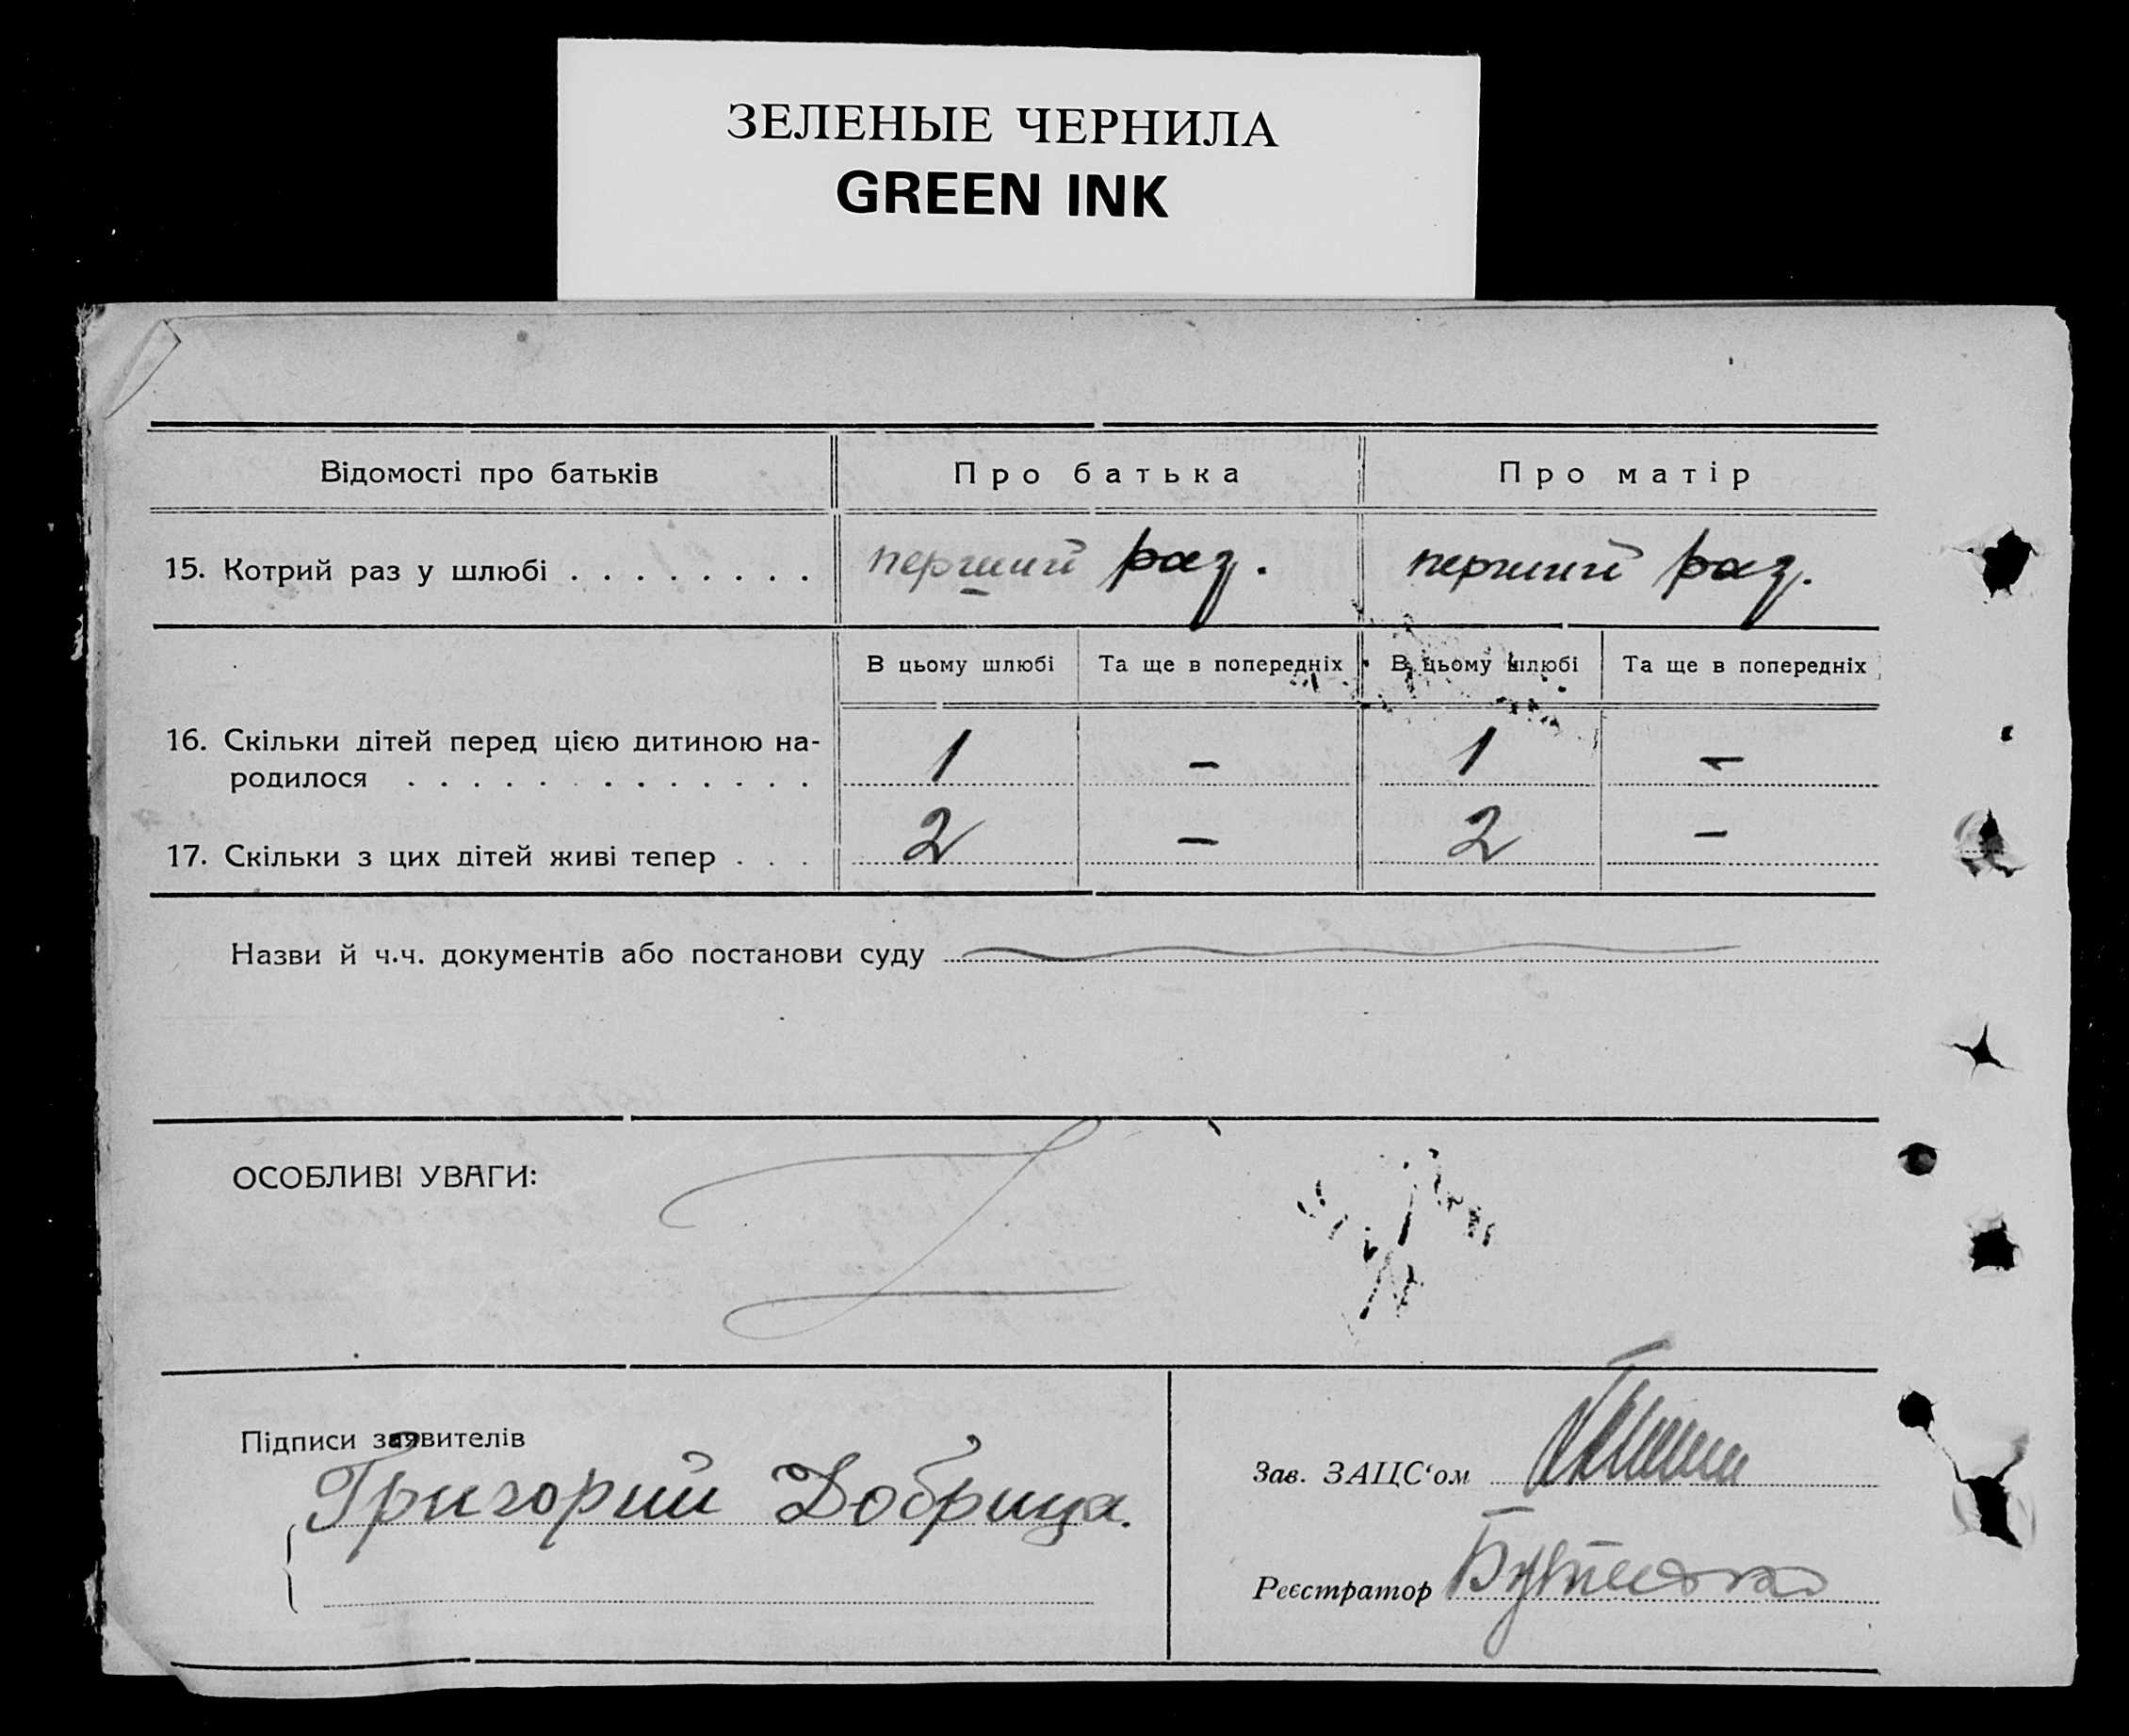 ЗЕЛЕНЫЕ ЧЕРНИЛА
GREEN INK
Відомості про батьків Про батька Про матір
15. Котрий раз у шлюбі . . . . . . . . перший раз. перший раз.
В цьому шлюбі Та ще в попередніх В цьому шлюбі Та ще в попередніх
16. Скільки дітей перед цією дитиною на-
родилося . . . . . . . . . . . . . 1 – 1 –
17. Скільки з цих дітей живі тепер . . . 2 – 2 –
Назви й ч.ч. документів або постанови суду
ОСОБЛИВІ УВАГИ:
Підписи заявителів
Григорий Добрица.
Зав. ЗАЦС‘ом
Реєстратор